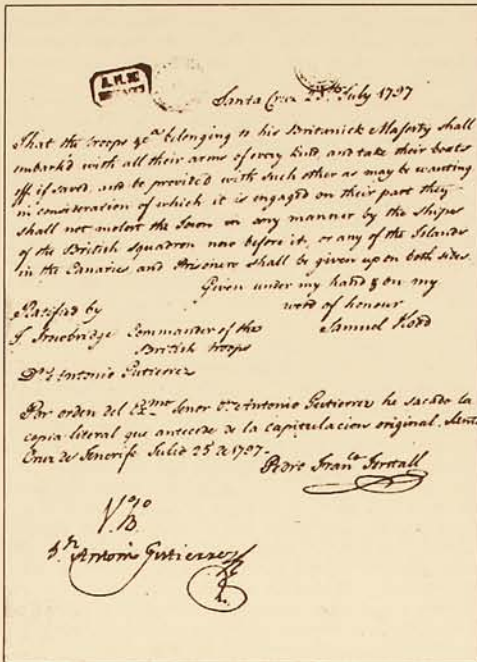 A.H.N.
Santa Cruz 25th July 1797
That the troops &ca belonging to his Britanick Majesty shall
embark'd with all their arms of every kind, and take their boats
off, if saved, and be provided with such other as may be wanting
in consideration of which it is engaged on their part they
shall not molest the Town in any manner by the ships
of the British Squadron now before it, or any of the Islands
in the Canaries and Prisoners shall be given upon both sides
Given under my hand & on my
word of honour
Ratified by
Samuel Hood
T. Trowbridge Commander of the
British troops
Dn Antonio Gutierrez
Por orden del Exmo Senor Dn Antonio Gutierrez he sacado la
copia literal que antecede de la capitulacion original. Santa
Cruz de Tenerife Julio 25 de 1797.
Pedro Franco
VoBo
Dn Antonio Gutierrez